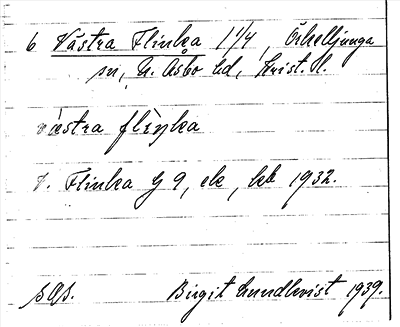 6 Västra Flinka 1 1/4, Örkelljunga
sn, N. Åsbo hd, Krist. l.
væstra flìŋka
V. Flinka G 9, ek, kb 1932.
SOS. Birgit Lundkvist 1939.